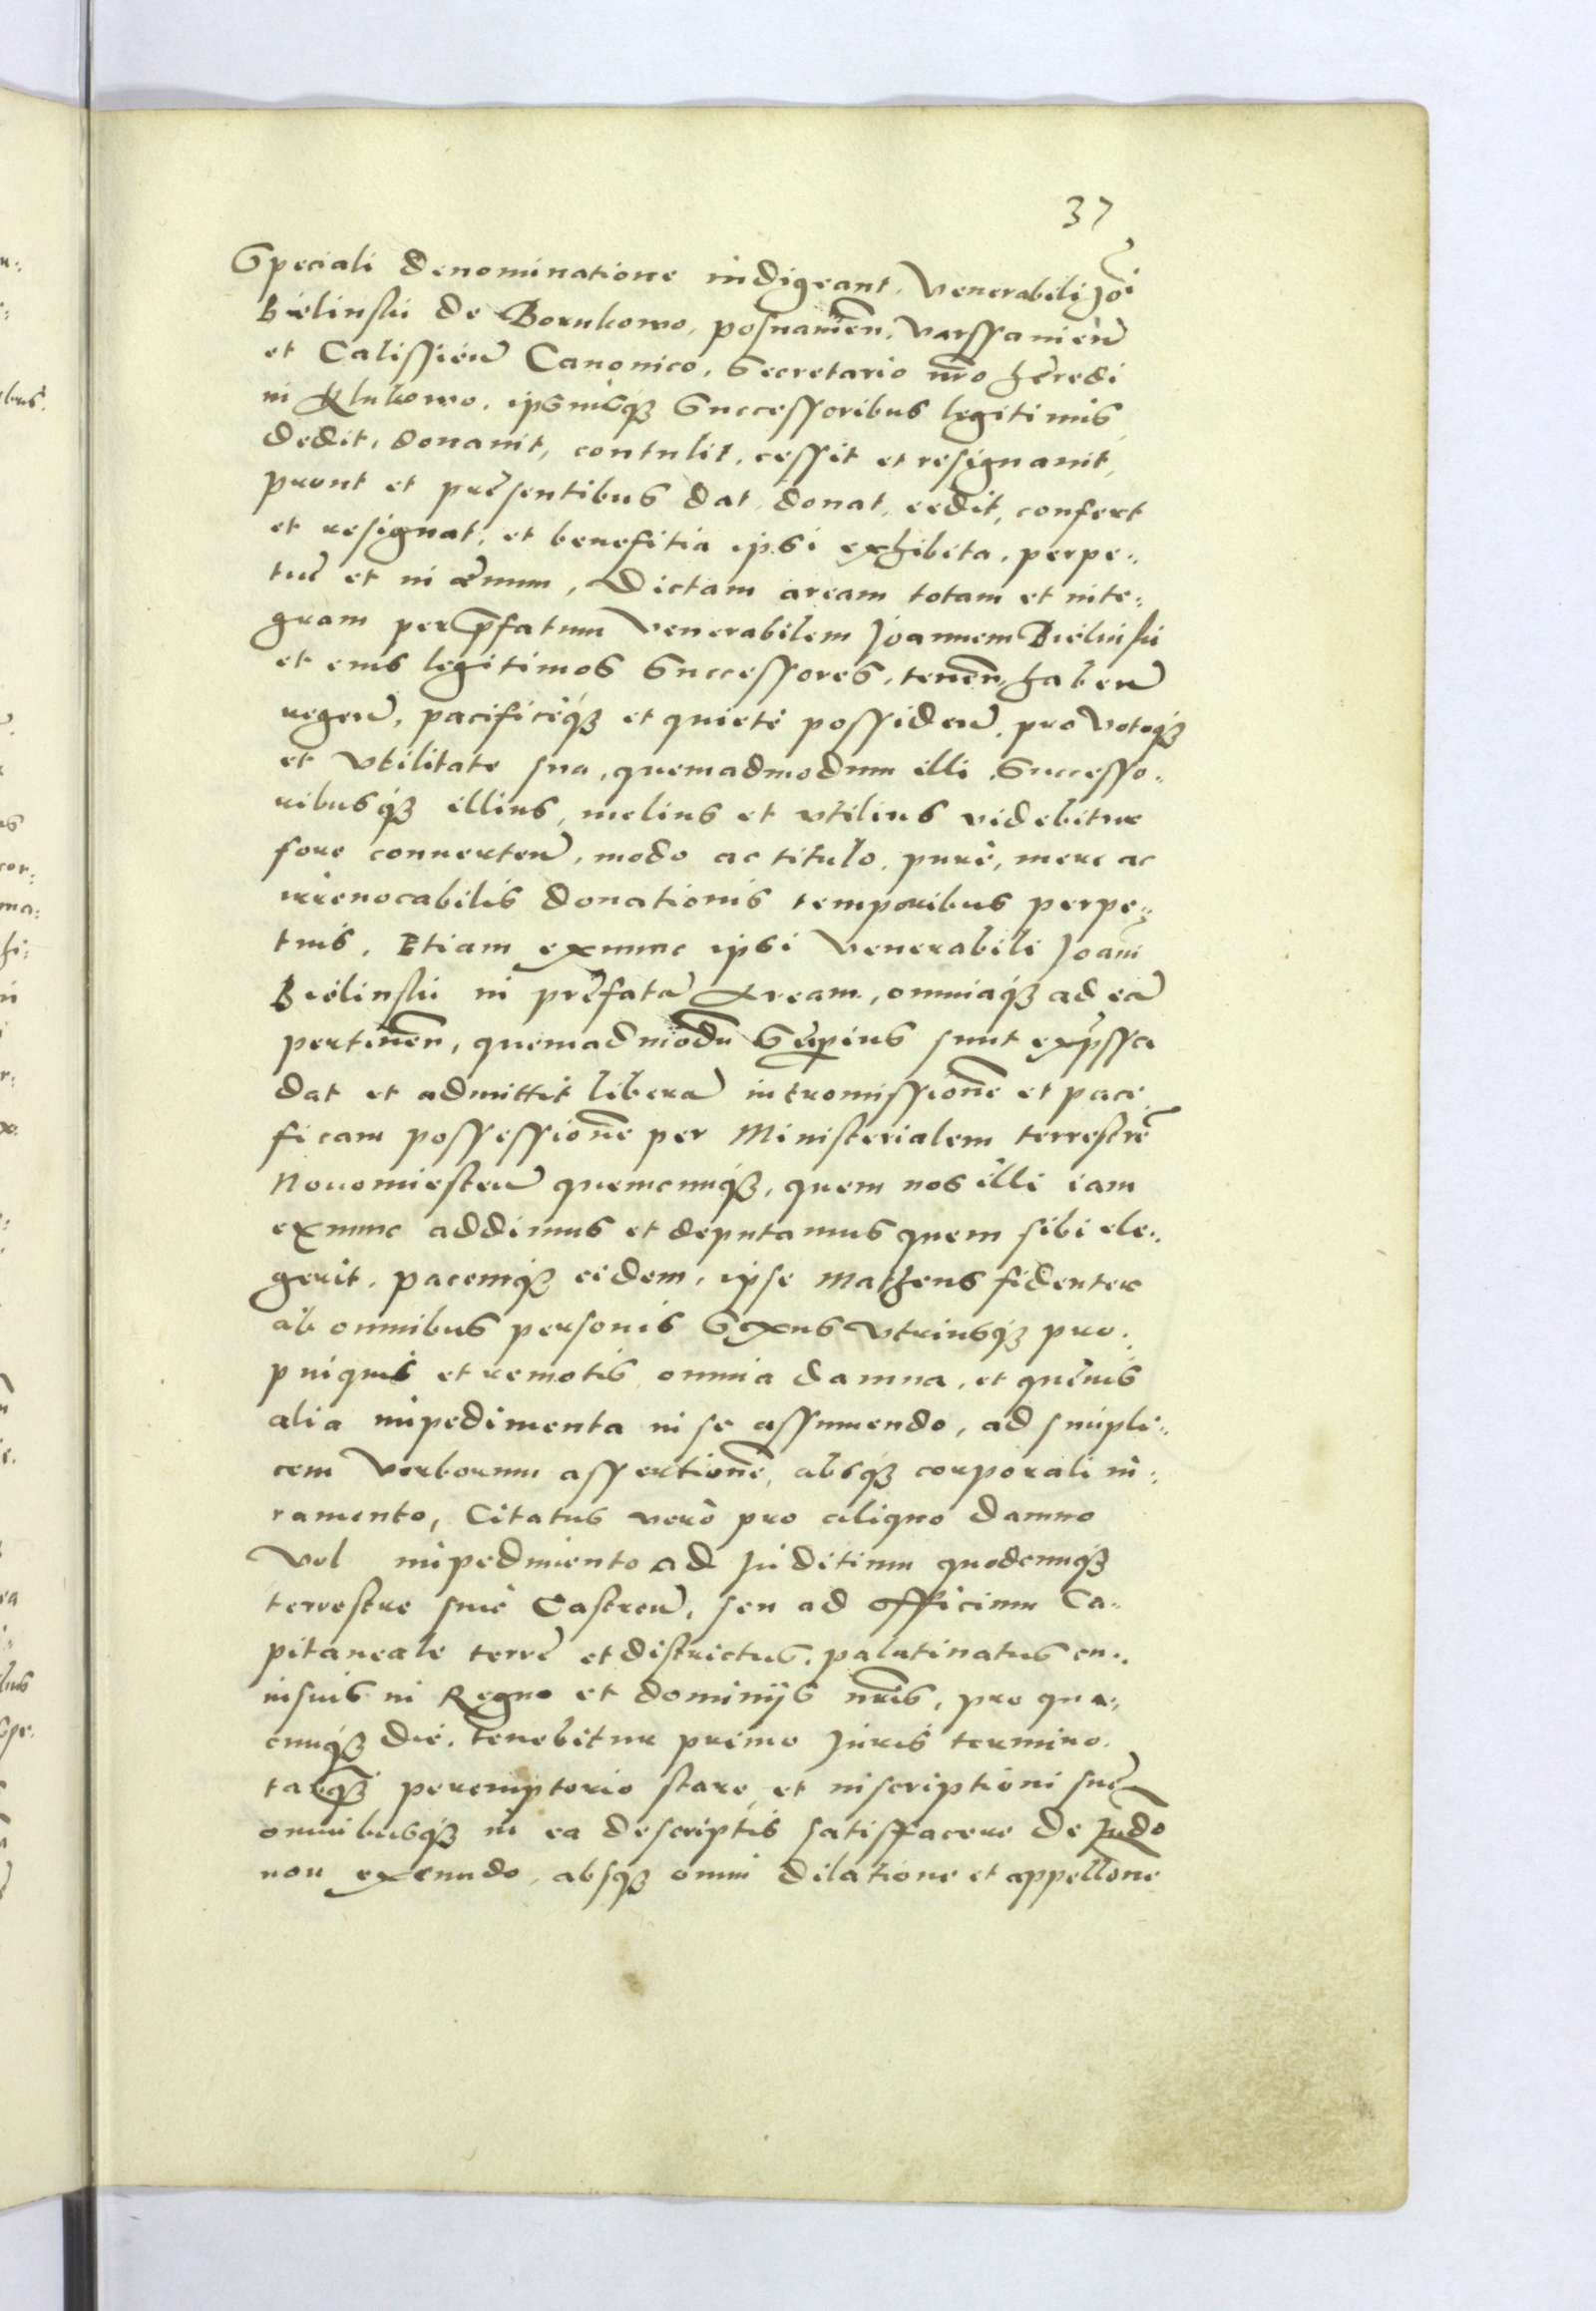 37
Speciali denominatione indigeant, Venerabili Joi
Bielinski de Bornkowo, posnanien, Varssanien
et Calissien Canonico, Secretario nro heredi
in Klukowo, ipsiusq Successoribus legitimis
dedit, donauit, contulit, cessit et resignauit,
prout et presentibus dat, donat, cedit, confert
et resignat, et benefitia ipsi exhibita, perpe:
tue et in æuum, Dictam aream totam et inte:
gram per pfatum Venerabilem Joannem Bielinski
et eius legitimos Successores, tenen, haben
regen, pacificeq et quietè possiden, pro Votoq
et Vtilitate sua, quemadmodum illi Successo:
ribusq illius, melius et vtilius videbitur
fore conuerten, modo ac titulo, purè, mere ac
irreuocabilis donationis temporibus perpe:
tuis, Etiam exnunc ipsi Venerabili Joani
Bielinski in prefata Aream, omniaq ad ea
pertinen, quemadmodu Superius sunt expssa
dat et admittit libera intromissione et paci
ficam possessione per Ministerialem terrestre
Nouomiesten quemcunq, quem nos illi iam
exnunc addimus et deputamus quem sibi ele:
gerit, pacemq eidem, ipse Matheus fidenter
ab omnibus personis Sexus Vtriusq pro:
pinquis et remotis, omnia damna, et queuis
alia impedimenta in se assumendo, ad simpli:
cem Verborum assertione, absq corporali iu:
ramento, Citatus verò pro aliquo damno
Vel impedimento ad Juditium quodcunq
terrestre siue Castren, seu ad officium Ca:
pitaneale terre et districtus, palatinatus cu:
iusuis in Regno et dominijs nris, pro qua:
cunq die, tenebitur primo Juris termino
tanq peremptorio stare, et inscriptioni sue
omnibusq in ea descriptis satisffacere de Judo
non exeundo, absq omni dilatione et appellone